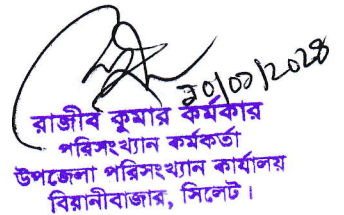 রাজীব কুমার কর্মকার
পরিসংখ্যান কর্মকর্তা
উপজেলা পরিসংখ্যান কার্যালয়
বিয়ানীবাজার, সিলেট।